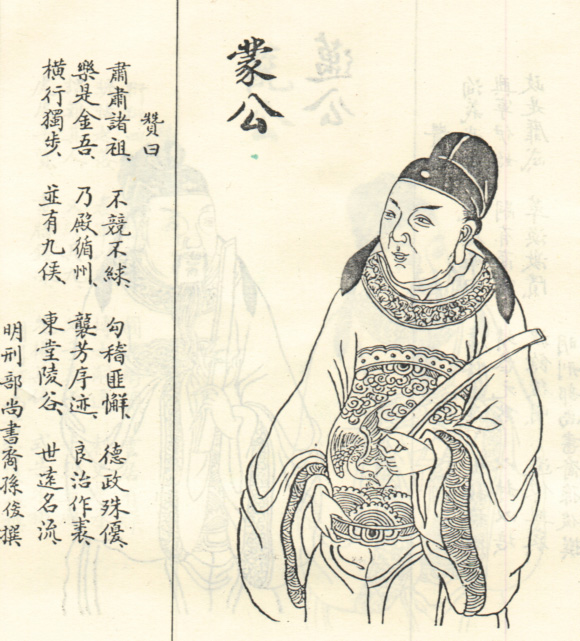 蒙公
贊曰
肅肅諸祖、不競不絿、勾稽匪懈、德政殊優、
樂是金吾、乃殿循州、襲芳序迹、良治作裘、
橫行獨步、並有九侯、東堂陵谷、世遠名流
明刑部尚書裔孫俊撰